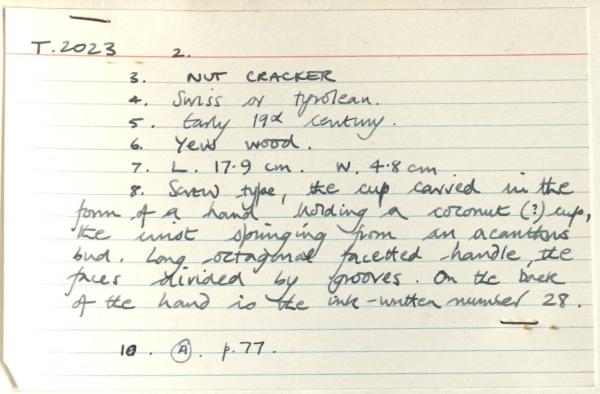 T.2023 2.
3. NUT CRACKER
4. Swiss or tyrolean.
5. Early 19th century.
6. Yew wood.
7. L. 17.9 cm. W. 4.8 cm
8. Screw type, the cup carved in the
form of a hand holding a coconut (?) cup,
the wrist springing from an acanthus
bud. Long octagonal facetted handle, the
faces divided by grooves. On the back
of the hand is the ink-written number 28.
10. A. p.77.